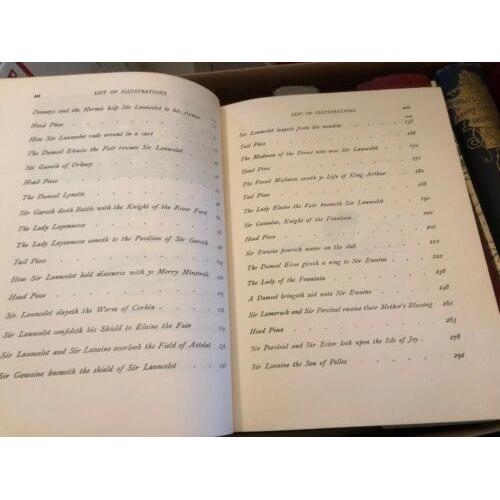 xvi LIST OF ILLUSTRATIONS
Denneys and the Hermit help Sir Launcelot to his Armor
Head Piece
How Sir Launcelot rode errant in a cart
The Damsel Elouise the Fair rescues Sir Launcelot
Sir Gareth of Orkney
Head Piece
The Damsel Lynette
Sir Gareth doeth Battle with the Knight of the River Ford
The Lady Layonnesse
The Lady Layonnesse cometh to the Pavilion of Sir Gareth
Tail Piece
How Sir Launcelot held discourse with ye Merry Minstrels
Head Piece
Sir Launcelot slayeth the Worm of Corbin
Sir Launcelot confideth his Shield to Elaine the Fair
Sir Launcelot and Sir Lavaine overlook the Field of Astolat
Sir Gawaine knoweth the shield of Sir Launcelot
LIST OF ILLUSTRATIONS
PAGE
Sir Launcelot leapeth from the window 158
Tail Piece 168
The Madman of the Forest who was Sir Launcelot 170
Head Piece 171
The Forest Madman saveth ye Life of King Arthur 180
Tail Piece 188
The Lady Elaine the Fair knoweth Sir Launcelot 190
Sir Gawaine, Knight of the Fountain 200
Head Piece 201
Sir Ewaine poureth water on the slab 212
The Damsel Elose giveth a ring to Sir Ewaine 222
The Lady of the Fountain 236
A Damsel bringeth aid unto Sir Ewaine 248
Sir Lamorack and Sir Percival receive their Mother's Blessing 262
Head Piece 263
Sir Percival and Sir Ector look upon the Isle of Joy 278
Sir Lavaine the Son of Pelles 292